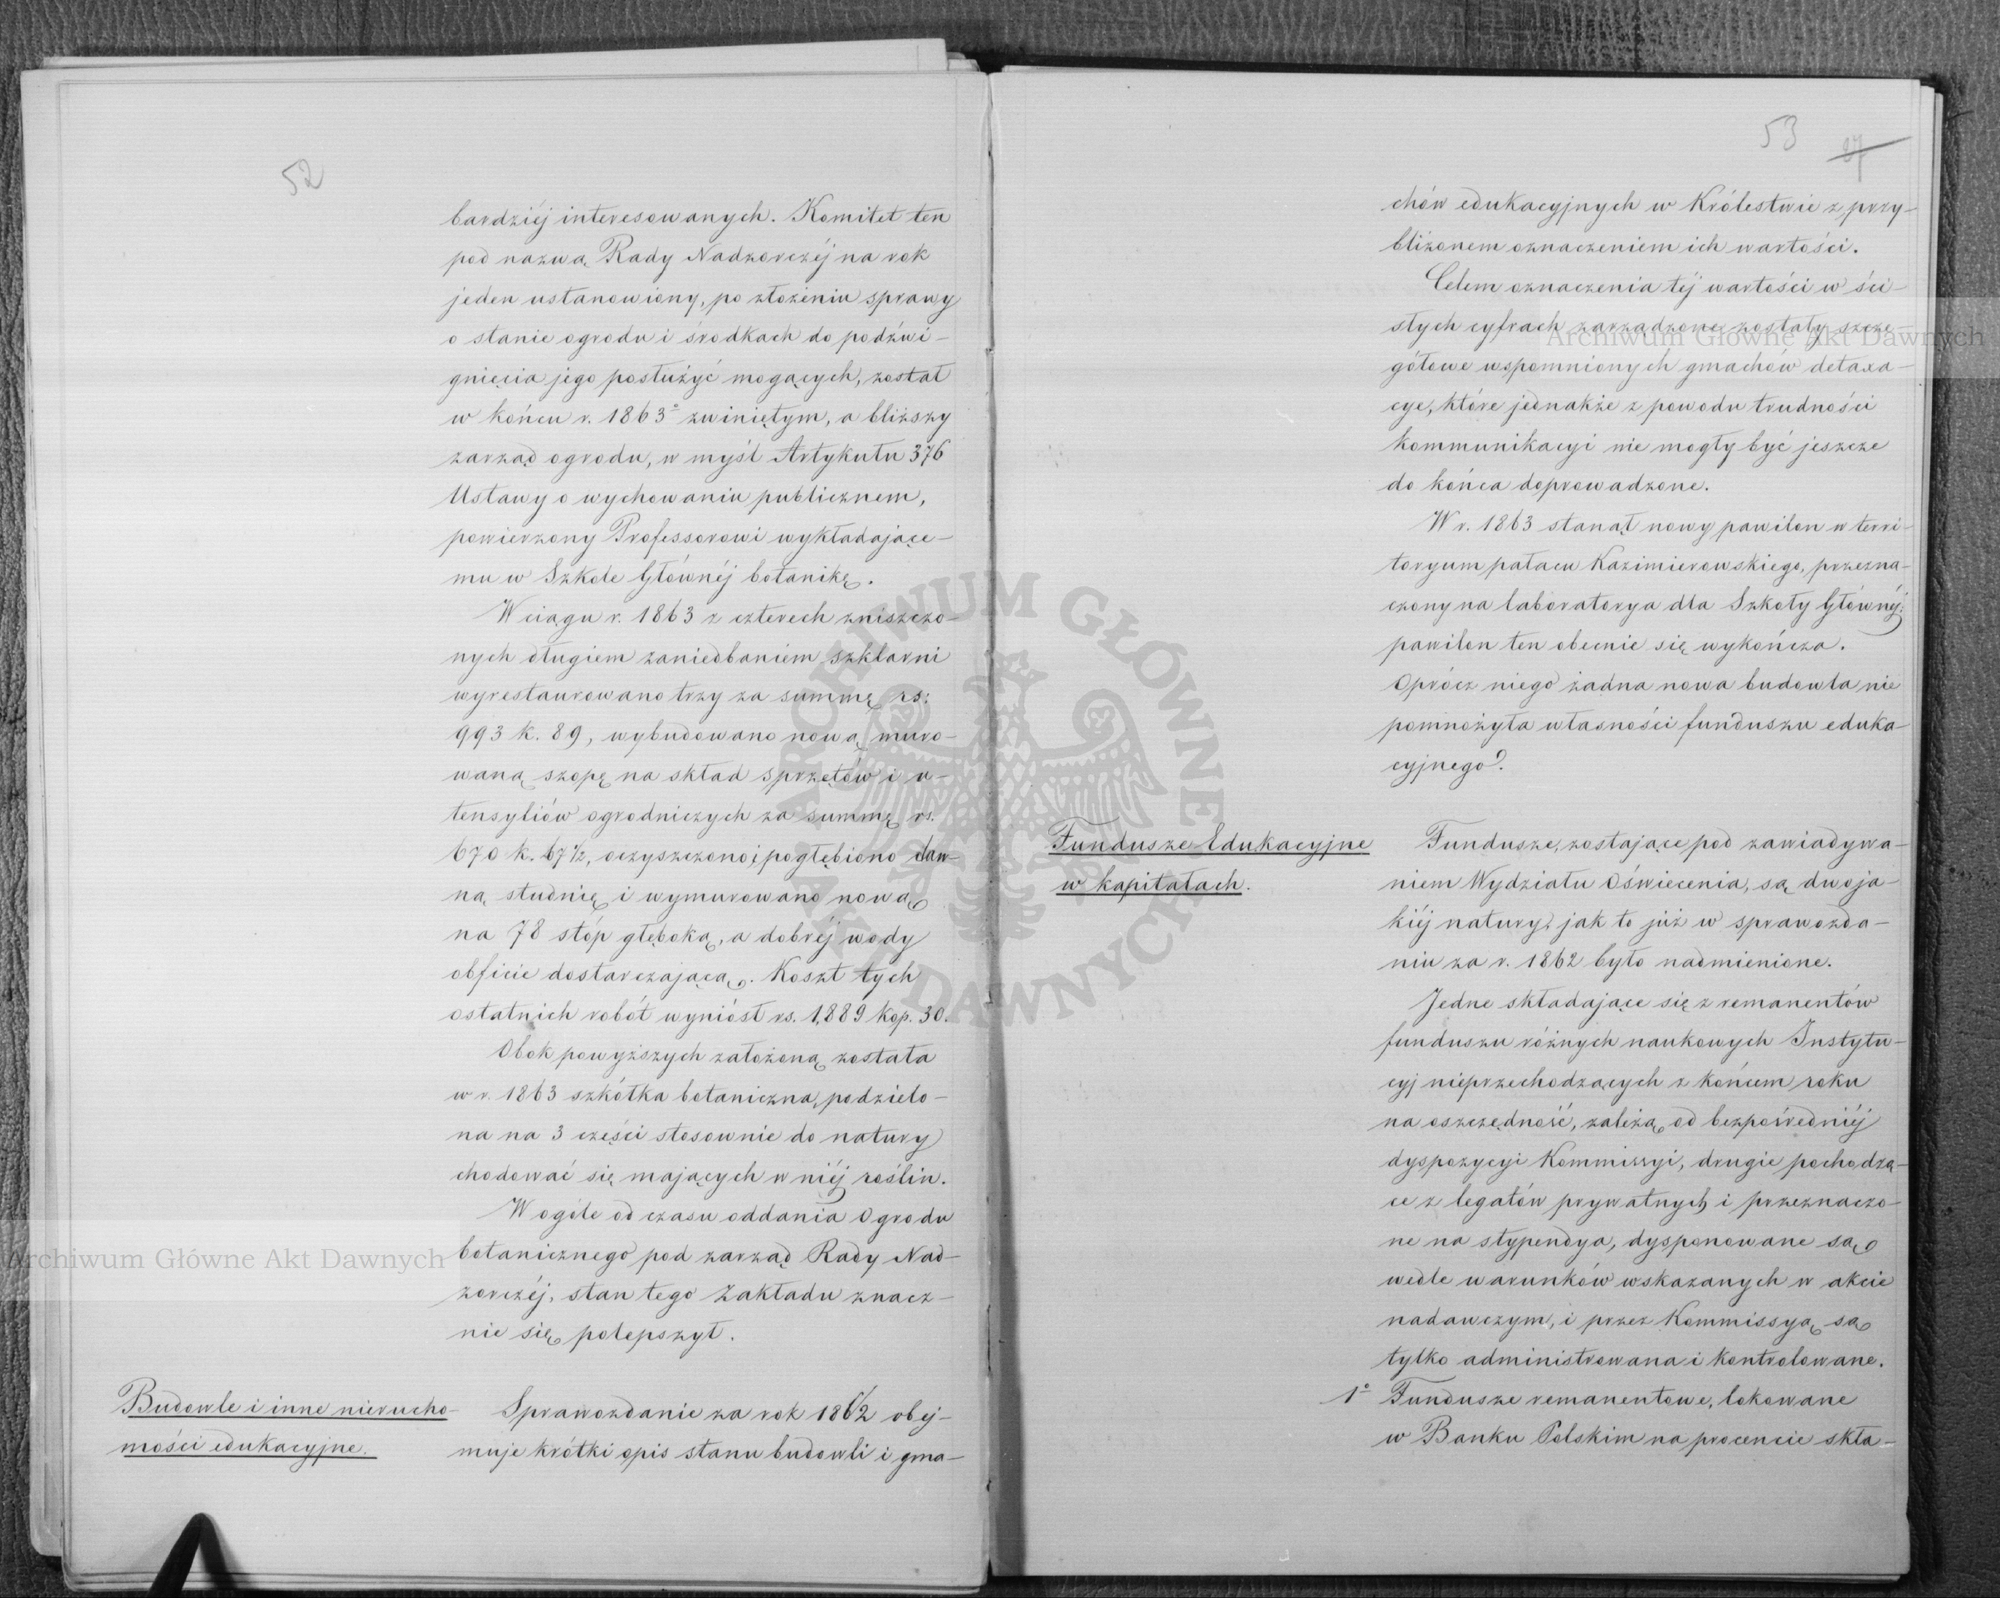 52
bardziéj interesowanych. Komitet ten
pod nazwą Rady Nadzorczéj na rok
jeden ustanowiony, po złożeniu sprawy
o stanie ogrodu i środkach do podźwi-
gnięcia jego posłużyć mogących, został
w końcu r. 1863° zwiniętym, a bliższy
zarząd ogrodu, w myśl Artykułu 376
Ustawy o wychowaniu publicznem,
powierzony Professorowi wykładające-
mu w Szkole Głównéj botanikę.
W ciągu r. 1863 z czterech zniszczo-
nych długiem zaniedbaniem szklarni
wyrestaurowano trzy za summę rs:
993 k. 89, wybudowano nową muro-
waną szopę na skład sprzętów i u-
tensyliów ogrodniczych za summę rs.
670 k. 67½, oczyszczono i pogłębiono daw-
ną studnię i wymurowano nową
na 78 stóp głęboką, a dobréj wody
obficie dostarczającą. Koszt tych
ostatnich robót wyniósł rs. 1,889 kop. 30.
Obok powyższych założoną została
w r. 1863 szkółka botaniczna, podzielo-
na na 3 części stosownie do natury
chodować się mających w niéj roślin.
W ogóle od czasu oddania Ogrodu
botanicznego pod zarząd Rady Nad-
zorczéj, stan tego Zakładu znacz-
nie się polepszył.
Budowle i inne nierucho-
mości edukacyjne.
Sprawozdanie za rok 1862 obej-
muje krótki opis stanu budowli i gma-
53
27
chów edukacyjnych w Królestwie z przy-
bliżonem oznaczeniem ich wartości.
Celem oznaczenia téj wartości w ści-
słych cyfrach zarządzone zostały szcze-
gółowe wspomnionych gmachów detaxa-
cye, które jednakże z powodu trudności
kommunikacyi nie mogły być jeszcze
do końca doprowadzone.
W r. 1863 stanął nowy pawilon w terri-
toryum pałacu Kazimirowskiego, przezna-
czony na laboratorya dla Szkoły Głównéj;
pawilon ten obecnie się wykończa.
Oprócz niego żadna nowa budowla nie
pomnożyła własności funduszu eduka-
cyjnego.
Fundusze Edukacyjne
w kapitałach.
Fundusze, zostające pod zawiadywa-
niem Wydziału Oświecenia, są dwoja-
kiéj natury, jak to już w sprawozda-
niu za r. 1862 było nadmienione.
Jedne składające się z remanentów
funduszu różnych naukowych Instytu-
cyj nieprzechodzących z końcem roku
na oszczędność, zależą od bezpośredniéj
dyspozycyi Kommissyi, drugie pochodzą-
ce z legatów prywatnych i przeznaczo-
ne na stypendya, dysponowane są
wedle warunków wskazanych w akcie
nadawczym, i przez Kommissyą są
tylko administrowana i kontrolowane.
1° Fundusze remanentowe, lokowane
w Banku Polskim na procencie skła-
Archiwum Główne Akt Dawnych
Archiwum Główne Akt Dawnych
ARCHIWUM GŁÓWNE AKT DAWNYCH W WARSZAWIE